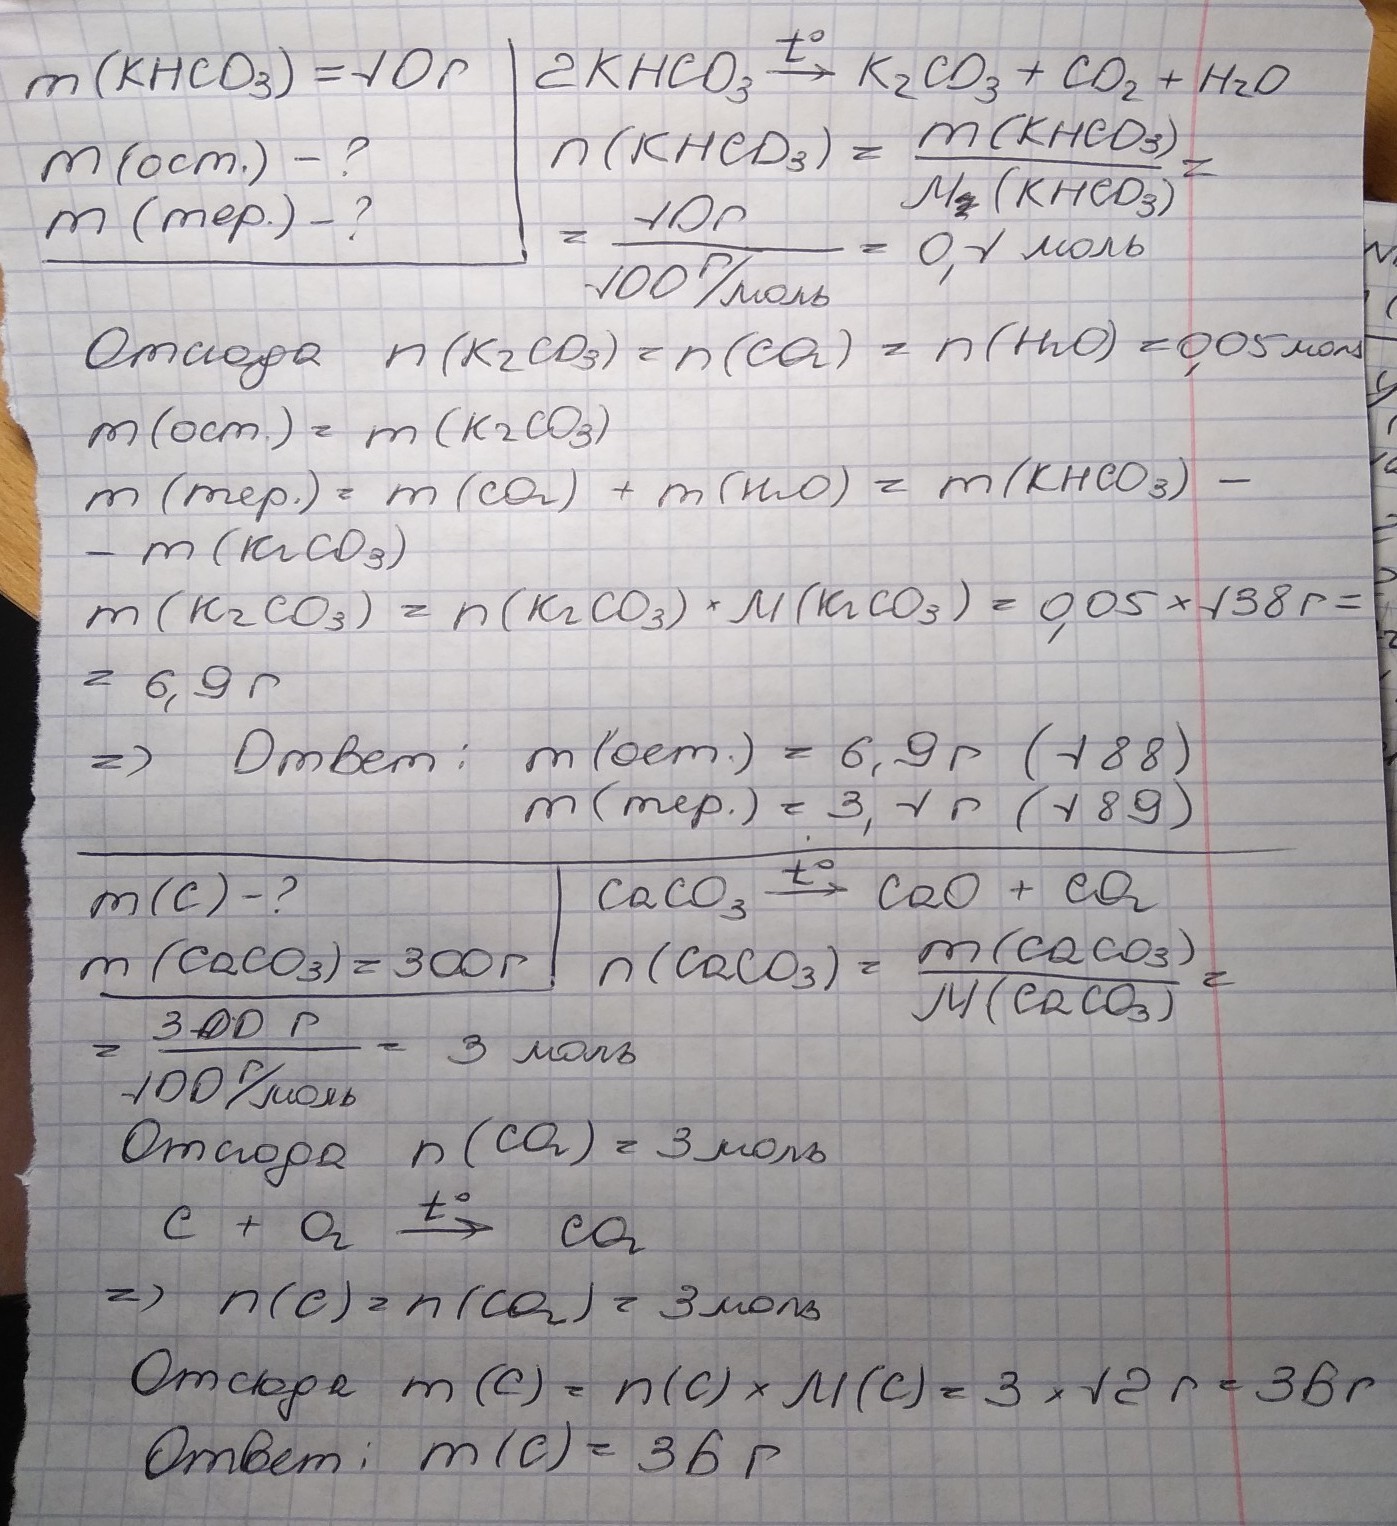 m(KHCO3) = 10г
m(ост.) - ?
m(тер.) - ?
2KHCO3 t°→ K2CO3 + CO2 + H2O
n(KHCO3) = m(KHCO3) / M(KHCO3) =
= 10г / 100г/моль = 0,1 моль
Отсюда n(K2CO3) = n(CO2) = n(H2O) = 0,05 моль
m(ост.) = m(K2CO3)
m(тер.) = m(CO2) + m(H2O) = m(KHCO3) -
- m(K2CO3)
m(K2CO3) = n(K2CO3) * M(K2CO3) = 0,05 × 138г =
= 6,9г
=> Ответ: m(ост.) = 6,9г (188)
m(тер.) = 3,1г (189)
m(C) - ?
m(CaCO3) = 300г
CaCO3 t°→ CaO + CO2
n(CaCO3) = m(CaCO3) / M(CaCO3) =
= 300 г / 100г/моль = 3 моль
Отсюда n(CO2) = 3 моль
C + O2 t°→ CO2
=> n(C) = n(CO2) = 3 моль
Отсюда m(C) = n(C) × M(C) = 3 × 12 г = 36г
Ответ: m(C) = 36 г